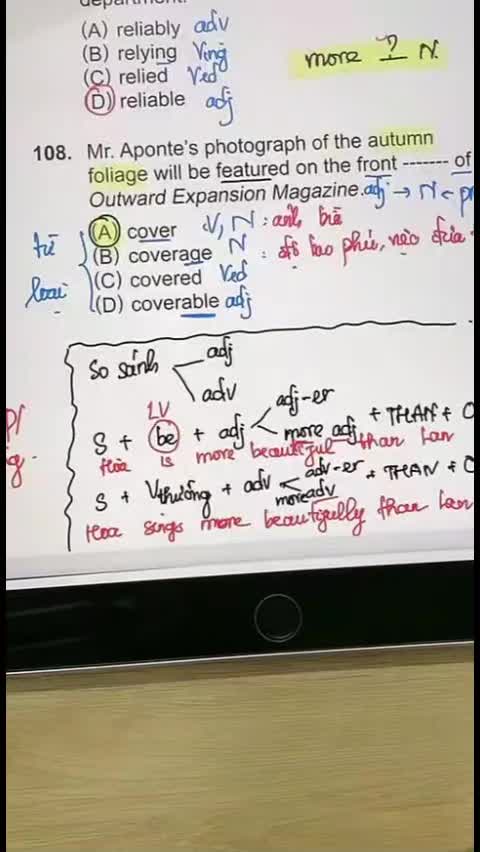 department.
(A) reliably adv
(B) relying Ving
(C) relied Ved
(D) reliable adj
more ? N.
108. Mr. Aponte's photograph of the autumn
foliage will be featured on the front ------- of
Outward Expansion Magazine. adj → N <
(A) cover V, N : ảnh bìa
(B) coverage N : độ bao phủ,
(C) covered Ved
(D) coverable adj
từ
loại
So sánh
adj
adv
LV
S + be + adj < adj-er
more adj + THAN + O
Hoa is more beautiful than Lan
S + Vthường + adv < adv-er
more adv + THAN + O
Hoa sings more beautifully than Lan